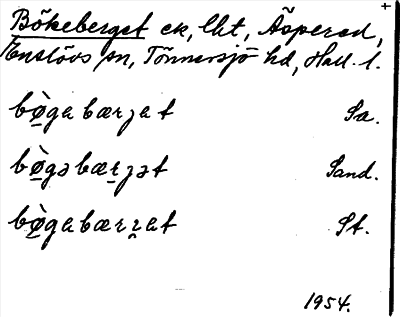 +
Bökeberget ek, lht, Äspered,
Enslövs sn, Tönnersjö hd, Hall. l.
bø̀gabærʒat Sa.
bø̀gəbærʒət Sand.
bø̀gabærʒat St.
1954.